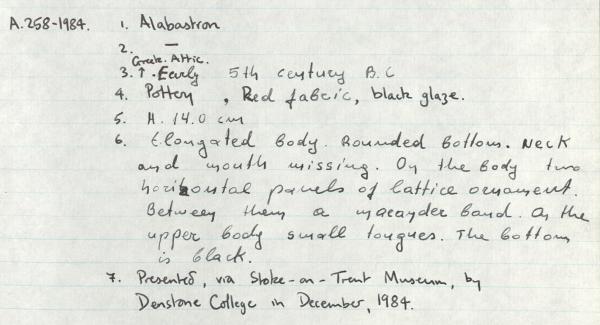 A.258-1984. 1. Alabastron
2. —
Greek. Attic.
3. ↑. Early 5th century B.C
4. Pottery, Red fabric, black glaze.
5. H. 14.0 cm
6. Elongated body. Rounded bottom. Neck
and mouth missing. On the body two
horizontal panels of lattice ornament.
Between them a meander band. On the
upper body small tongues. The bottom
is black.
7. Presented, via Stoke-on-Trent Museum, by
Denstone College in December, 1984.